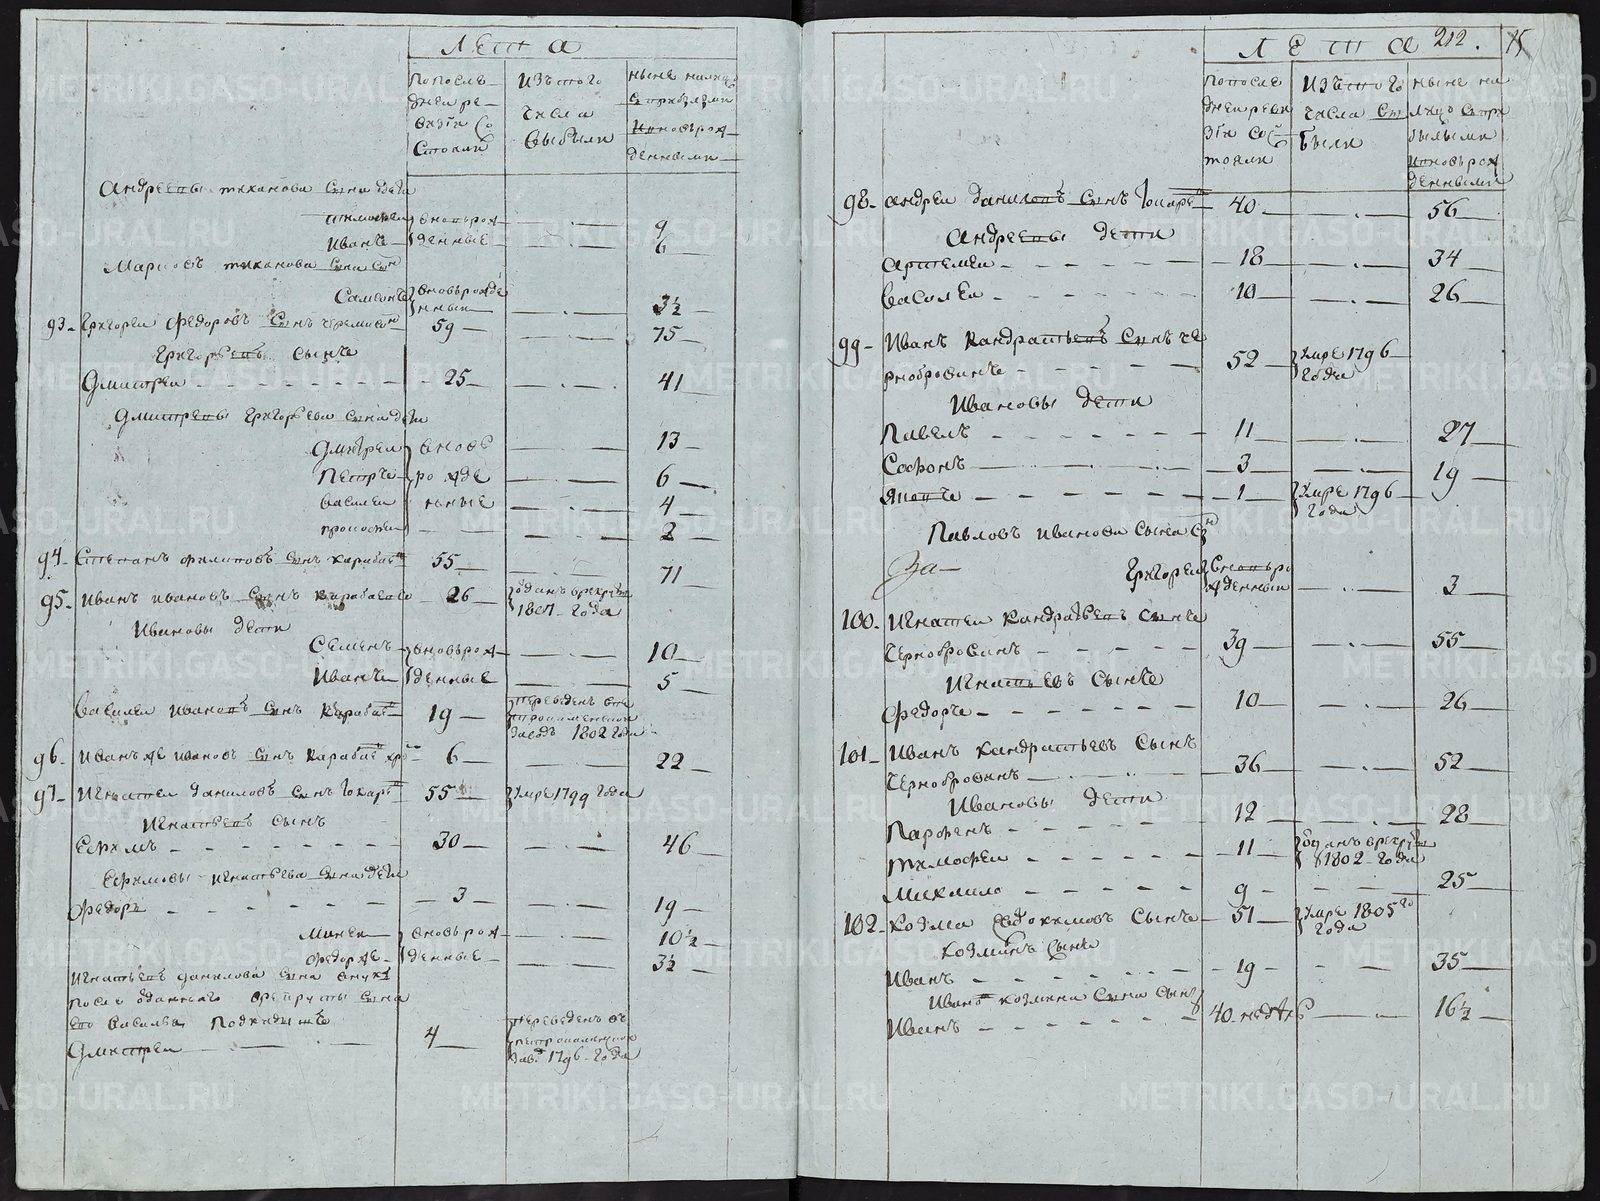 ЛЕТА
попослѣ-
днеи ре-
визiи со
стояли
изътого
числа
выбыли
ныне налицо
сприбылыми
иновьрож
денными
Андреевы тиханова сына дети
тимофеи вновьрож - . - 9
Иванъ денные - . - 6
Марковъ тиханова сына сын
Самсонъ вновьрожде
нныи - . - 3½
93. Григореи Федоровъ сынъ 59 - . - 75
Григорьевъ сынъ
Дмитреи - 25 - . - 41
Дмитревы Григорьева сына дети
Дмитреи вновь - 13
Петръ рожде - 6
василеи нные - 4
прокопеи - 2
94. Степанъ филиповъ сынъ карабаев 55 - . - 71
95. Иванъ ивановъ сынъ карабаевъ 26 отданъ врекруты
1807 года
Ивановы дети
Семенъ вновьрож - 10
Иванъ денные - 5
василеи ивановъ сынъ карабаев 19 переведенъ вне
троипаменскои
заводъ 1802 года
96. Иванъ же ивановъ сынъ карабаев 6 - . - 22
97. Игнатеи даниловъ сынъ токарев 55 умре 1799 года
Игнатьевъ сынъ
Ефимъ - 30 - . - 46
Ефимовы игнатьева сына дети
Федоръ - 3 - . - 19
Минеи вновьрож - . - 10½
Федоръ же денные - . - 3½
Игнатьевъ данилова сына внукъ
после отданнаго врекруты сына
его василья
Дмитреи - 4 переведенъ въ
завод 1796 года
ЛЕТА 212. 15
попосле
днеи реви
зiи сос
тояли
изътого
числа вы
были
ныне на
лицо спри
былыми
иновьрож
денными
98. Андреи даниловъ сынъ токарев 40 - . - 56
Андреевы дети
Артемеи - 18 - . - 34
василеи - 10 - . - 26
99. Иванъ кандратьевъ сынъ че
рнобровинъ - 52 умре 1796
года
Ивановы дети
Павелъ - 11 - . - 27
Софонъ - 3 - . - 19
- 1 умре 1796
года
Павловъ иванова сына сын
Григореи вновьро
жденныи - . - 3
100. Игнатеи кандратьевъ сынъ
чернобровинъ - 39 - . - 55
Игнатьевъ сынъ
Федоръ - 10 - . - 26
101. Иванъ кандратьевъ сынъ
чернобровинъ - 36 - . - 52
Ивановы дети
Парфенъ - 12 - . - 28
тимофеи - 11 отданъ врекруты
1802 года
михаило - 9 - 25
102. козма евдокимовъ сынъ 51 умре 1805 го
года
козминъ сынъ
Иванъ - 19 - 35
Иванов козмина сына сынъ
Иванъ - 40 недель - . - 16½